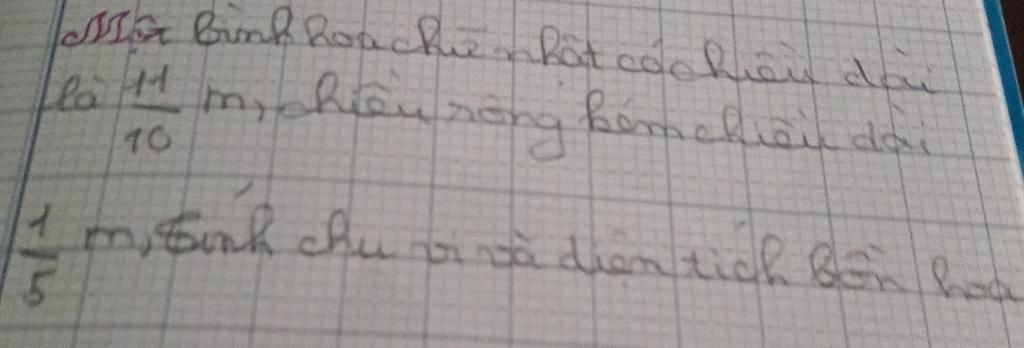 Một bồn hoa chữ nhật có chiều dài
là 11/10 m, chiều rộng kém chiều dài
1/5 m, tính chu vi và diện tích bồn hoa